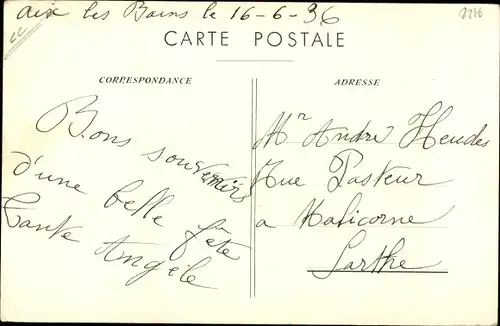 Aix les Bains le 16-6-36
2216
CARTE POSTALE
CORRESPONDANCE
Bons souvenirs
d'une belle fête
Tante Angèle
ADRESSE
Mr André Heudes
Rue Pasteur
a Malicorne
Sarthe